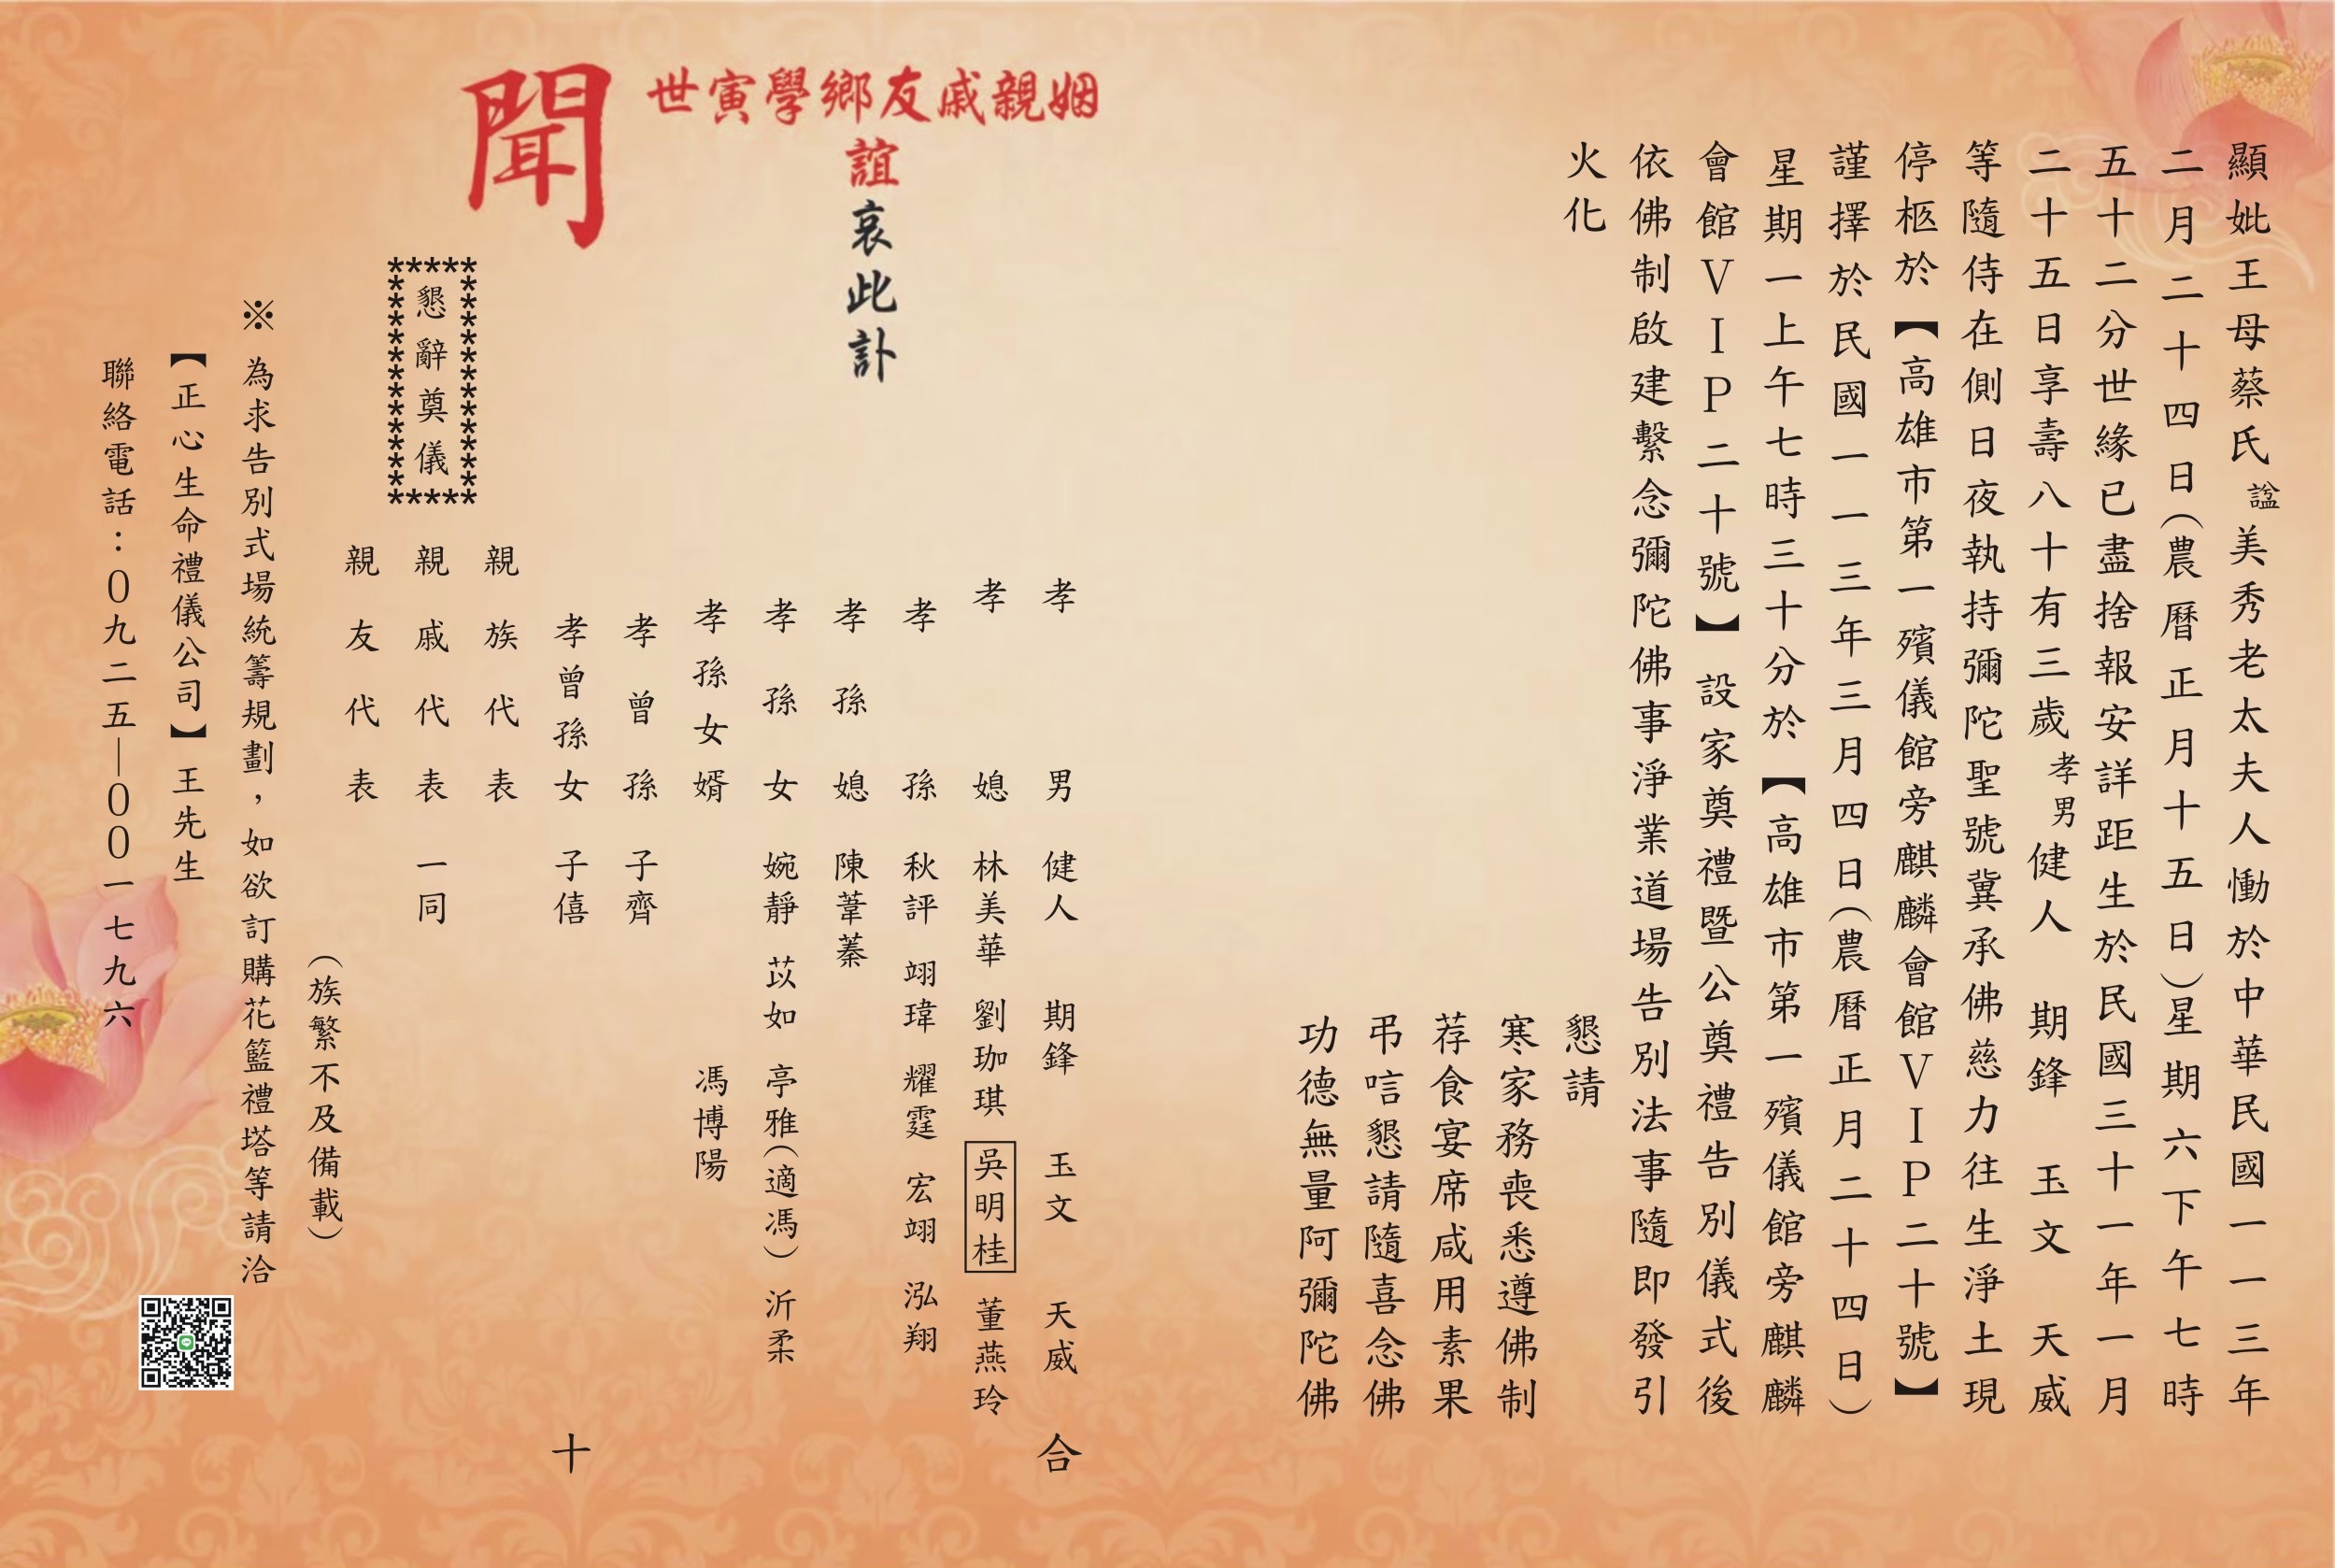 顯妣王母蔡氏諡美秀老太夫人慟於中華民國一一三年
二月二十四日（農曆正月十五日）星期六下午七時
五十二分世緣已盡捨報安詳距生於民國三十一年一月
二十五日享壽八十有三歲孝男健人 期鋒 玉文 天威
等隨侍在側日夜執持彌陀聖號冀承佛慈力往生淨土現
停柩於【高雄市第一殯儀館旁麒麟會館VIP二十號】
謹擇於民國一一三年三月四日（農曆正月二十四日）
星期一上午七時三十分於【高雄市第一殯儀館旁麒麟
會館VIP二十號】設家奠禮暨公奠禮告別儀式後
依佛制啟建繫念彌陀佛事淨業道場告別法事隨即發引
火化
懇請
寒家務喪悉遵佛制
荐食宴席咸用素果
弔唁懇請隨喜念佛
功德無量阿彌陀佛
姻親戚友鄉學寅世
誼
哀此訃
聞
孝男 健人 期鋒 玉文 天威 合
孝媳 林美華 劉珈琪 吳明桂 董燕玲
孝孫 秋評 翊瑋 耀霆 宏翊 泓翔
孝孫媳 陳葦蓁
孝孫女 婉靜 苡如 亭雅（適馮） 沂柔
孝孫女婿 馮博陽
孝曾孫 子齊
孝曾孫女 子僖 十
親族代表
親戚代表 一同
親友代表
懇辭奠儀
（族繁不及備載）
※ 為求告別式場統籌規劃，如欲訂購花籃禮塔等請洽
【正心生命禮儀公司】王先生
聯絡電話：０九二五—００一七九六